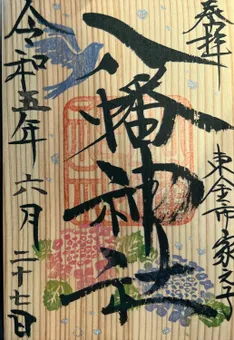 奉拝
東金市家之子
八幡神社
令和五年 六月 二十七日